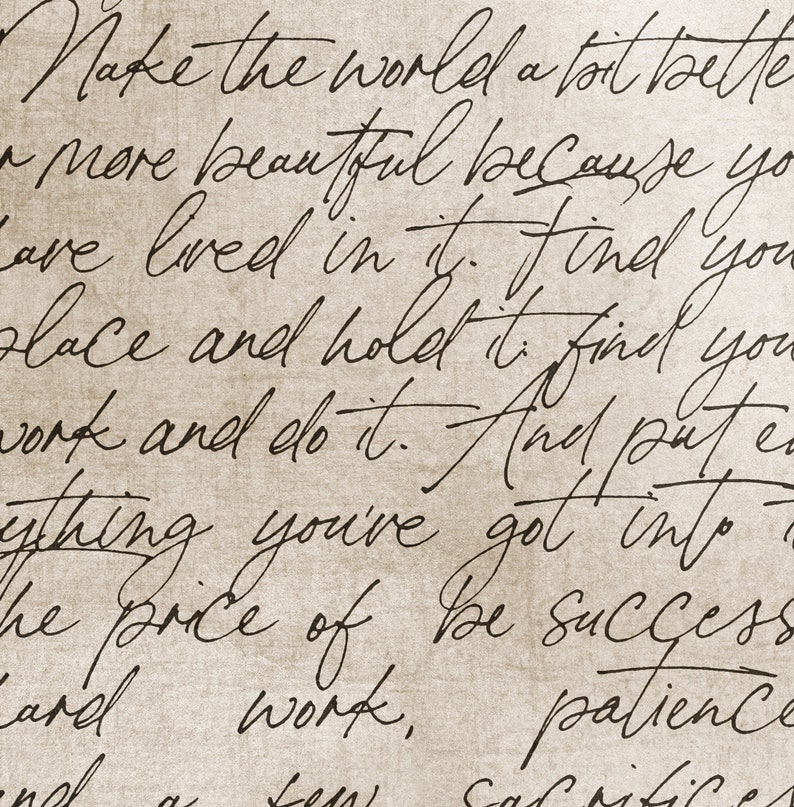 Make the world a bit bette
r more beautiful because yo
have lived in it. Find you
place and hold it: find you
work and do it. And put ev
ything you've got into i
he price of be success
hard work, patience
and a few sacrifices